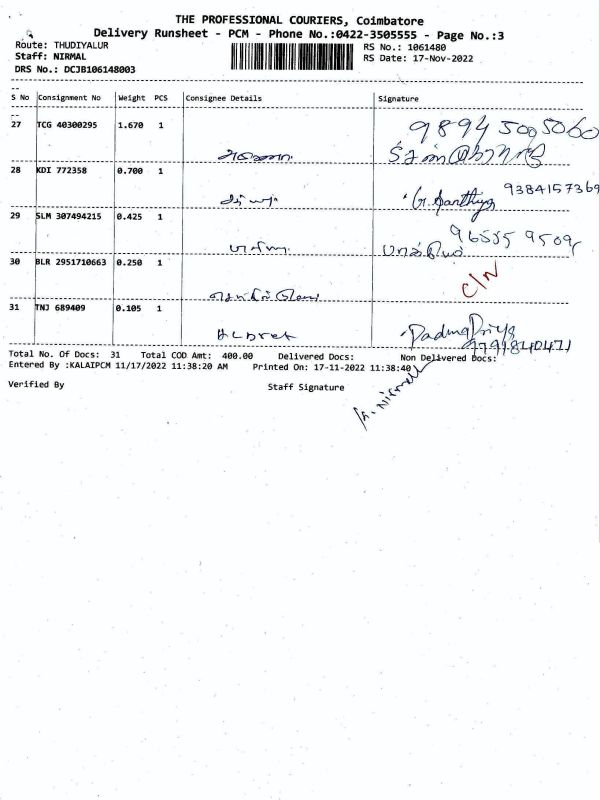 THE PROFESSIONAL COURIERS, Coimbatore
Delivery Runsheet - PCM - Phone No.:0422-3505555 - Page No.:3
Route: THUDIYALUR
Staff: NIRMAL
DRS No.: DCJB106148003
RS No.: 1061480
RS Date: 17-Nov-2022
S No Consignment No Weight PCS Consignee Details Signature
27 TCG 40300295 1.670 1
28 KDI 772358 0.700 1 G. Santhiya 9384157369
29 SLM 307494215 0.425 1
30 BLR 2951710663 0.250 1 C/N
31 TNJ 689409 0.105 1 Padma Priya
Total No. Of Docs: 31 Total COD Amt: 400.00 Delivered Docs: Non Delivered Docs:
Entered By :KALAIPCM 11/17/2022 11:38:20 AM Printed On: 17-11-2022 11:38:40
Verified By Staff Signature
Nirmal